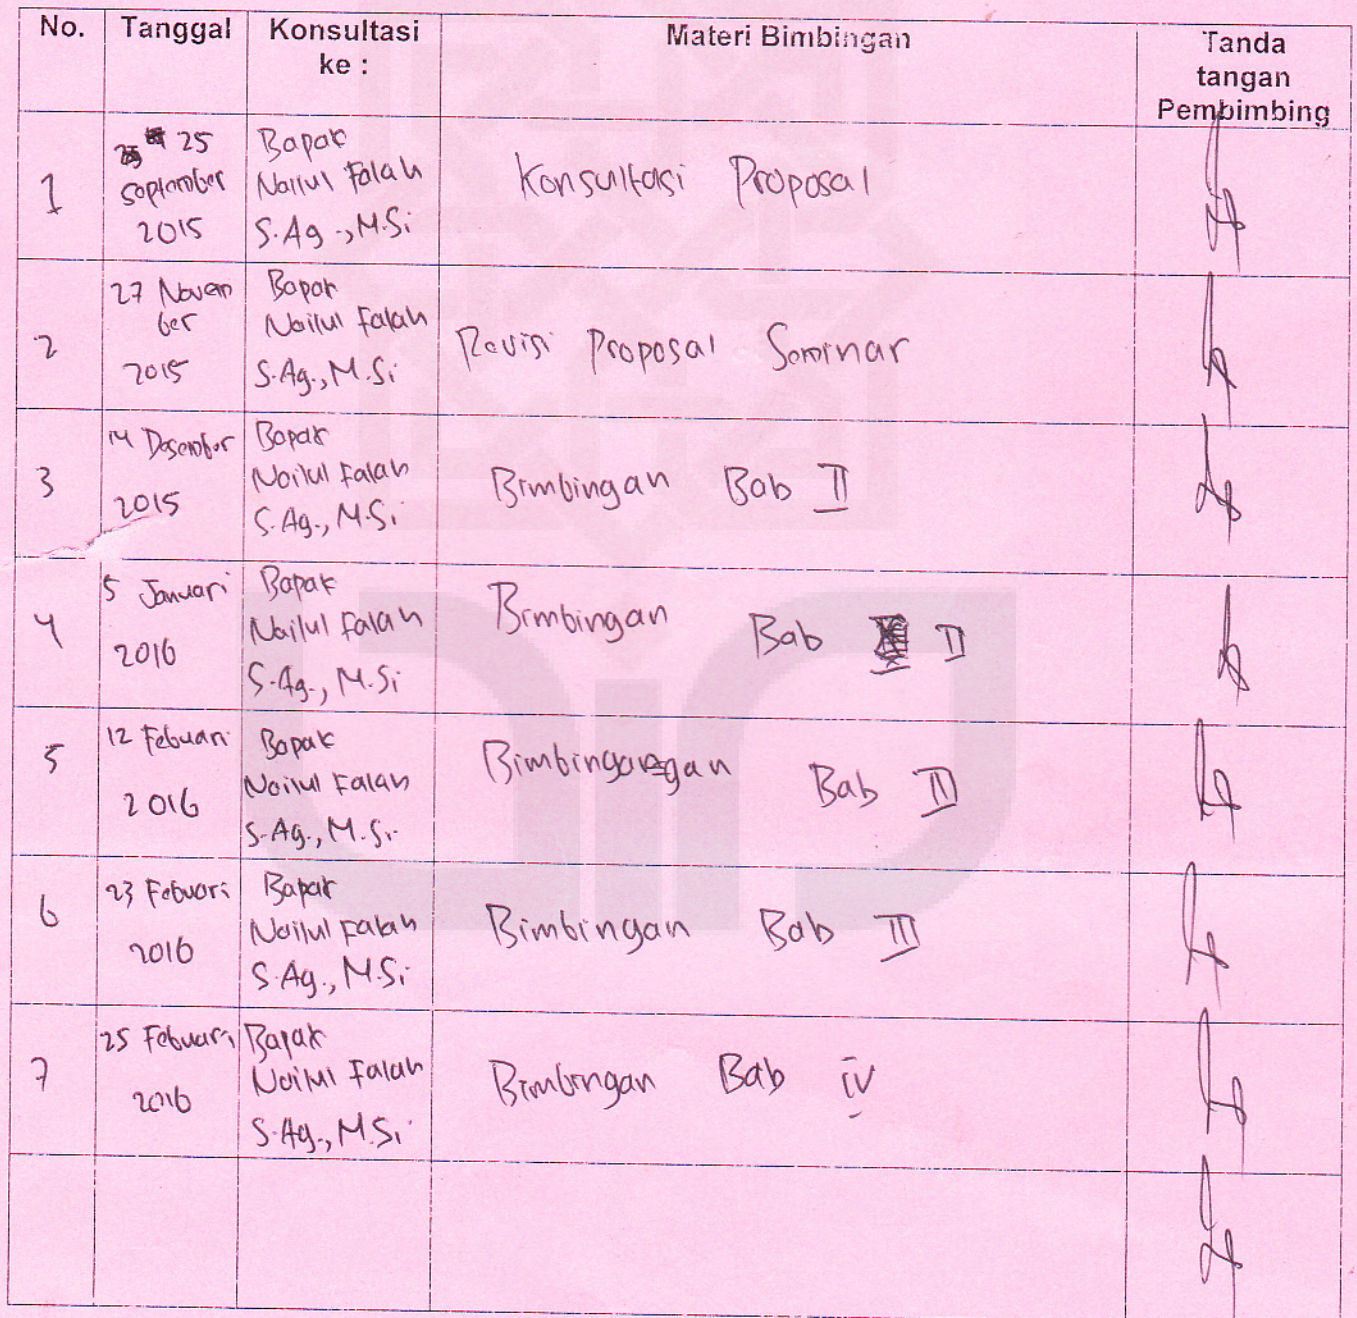 No. Tanggal Konsultasi ke : Materi Bimbingan Tanda tangan Pembimbing
1
25
September
2015
Bapak
Nailul Falah
S.Ag., M.Si
Konsultasi Proposal
2
27 Novem
ber
2015
Bapak
Nailul Falah
S.Ag., M.Si
Revisi Proposal Seminar
3
14 Desember
2015
Bapak
Nailul Falah
S.Ag., M.Si
Bimbingan Bab II
4
5 Januari
2016
Bapak
Nailul Falah
S.Ag., M.Si
Bimbingan Bab II
5
12 Febuari
2016
Bapak
Nailul Falah
S.Ag., M.Si
Bimbingangan Bab II
6
23 Febuari
2016
Bapak
Nailul Falah
S.Ag., M.Si
Bimbingan Bab III
7
25 Febuari
2016
Bapak
Nailul Falah
S.Ag., M.Si
Bimbingan Bab IV